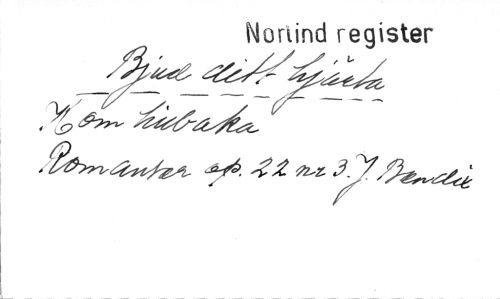 Norlind register
Bjud ditt hjärta
Kom tillbaka
Romanser op. 22 nr 3. J. Bendix